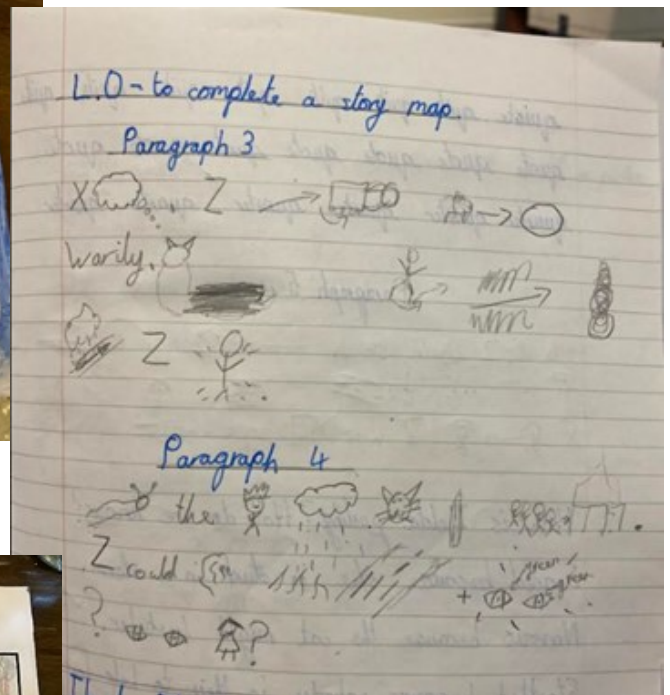 L.O - to complete a story map.
Paragraph 3
X Z
Warily,
Z
Paragraph 4
the
Z could
+ green green
? ?